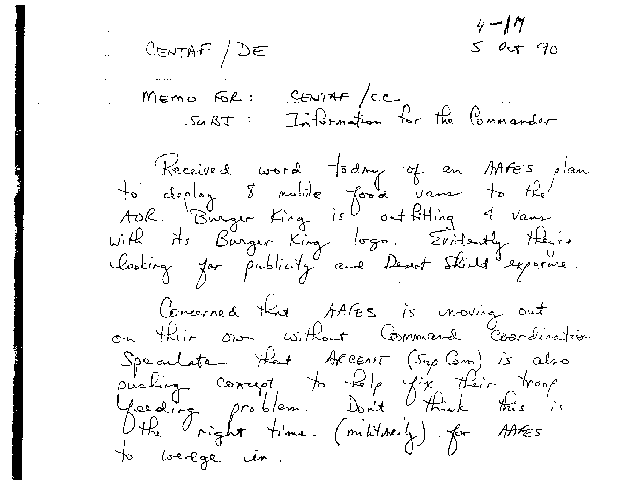 4-17
CENTAF/DE 5 Oct 90
MEMO FOR: CENTAF/CC
SUBT: Information for the Commander
Received word today of an AAFES plan
to deploy 8 mobile food vans to the
AOR. Burger King is outfitting 4 vans
with its Burger King logo. Evidently their
looking for publicity and Desert Shield exposure.
Concerned that AAFES is moving out
on their own without Command Coordination
Speculate that ARCENT (Sup Com) is also
pushing concept to help fix their troop
feeding problem. Don't think this is
the right time (militarily) for AAFES
to werege in.